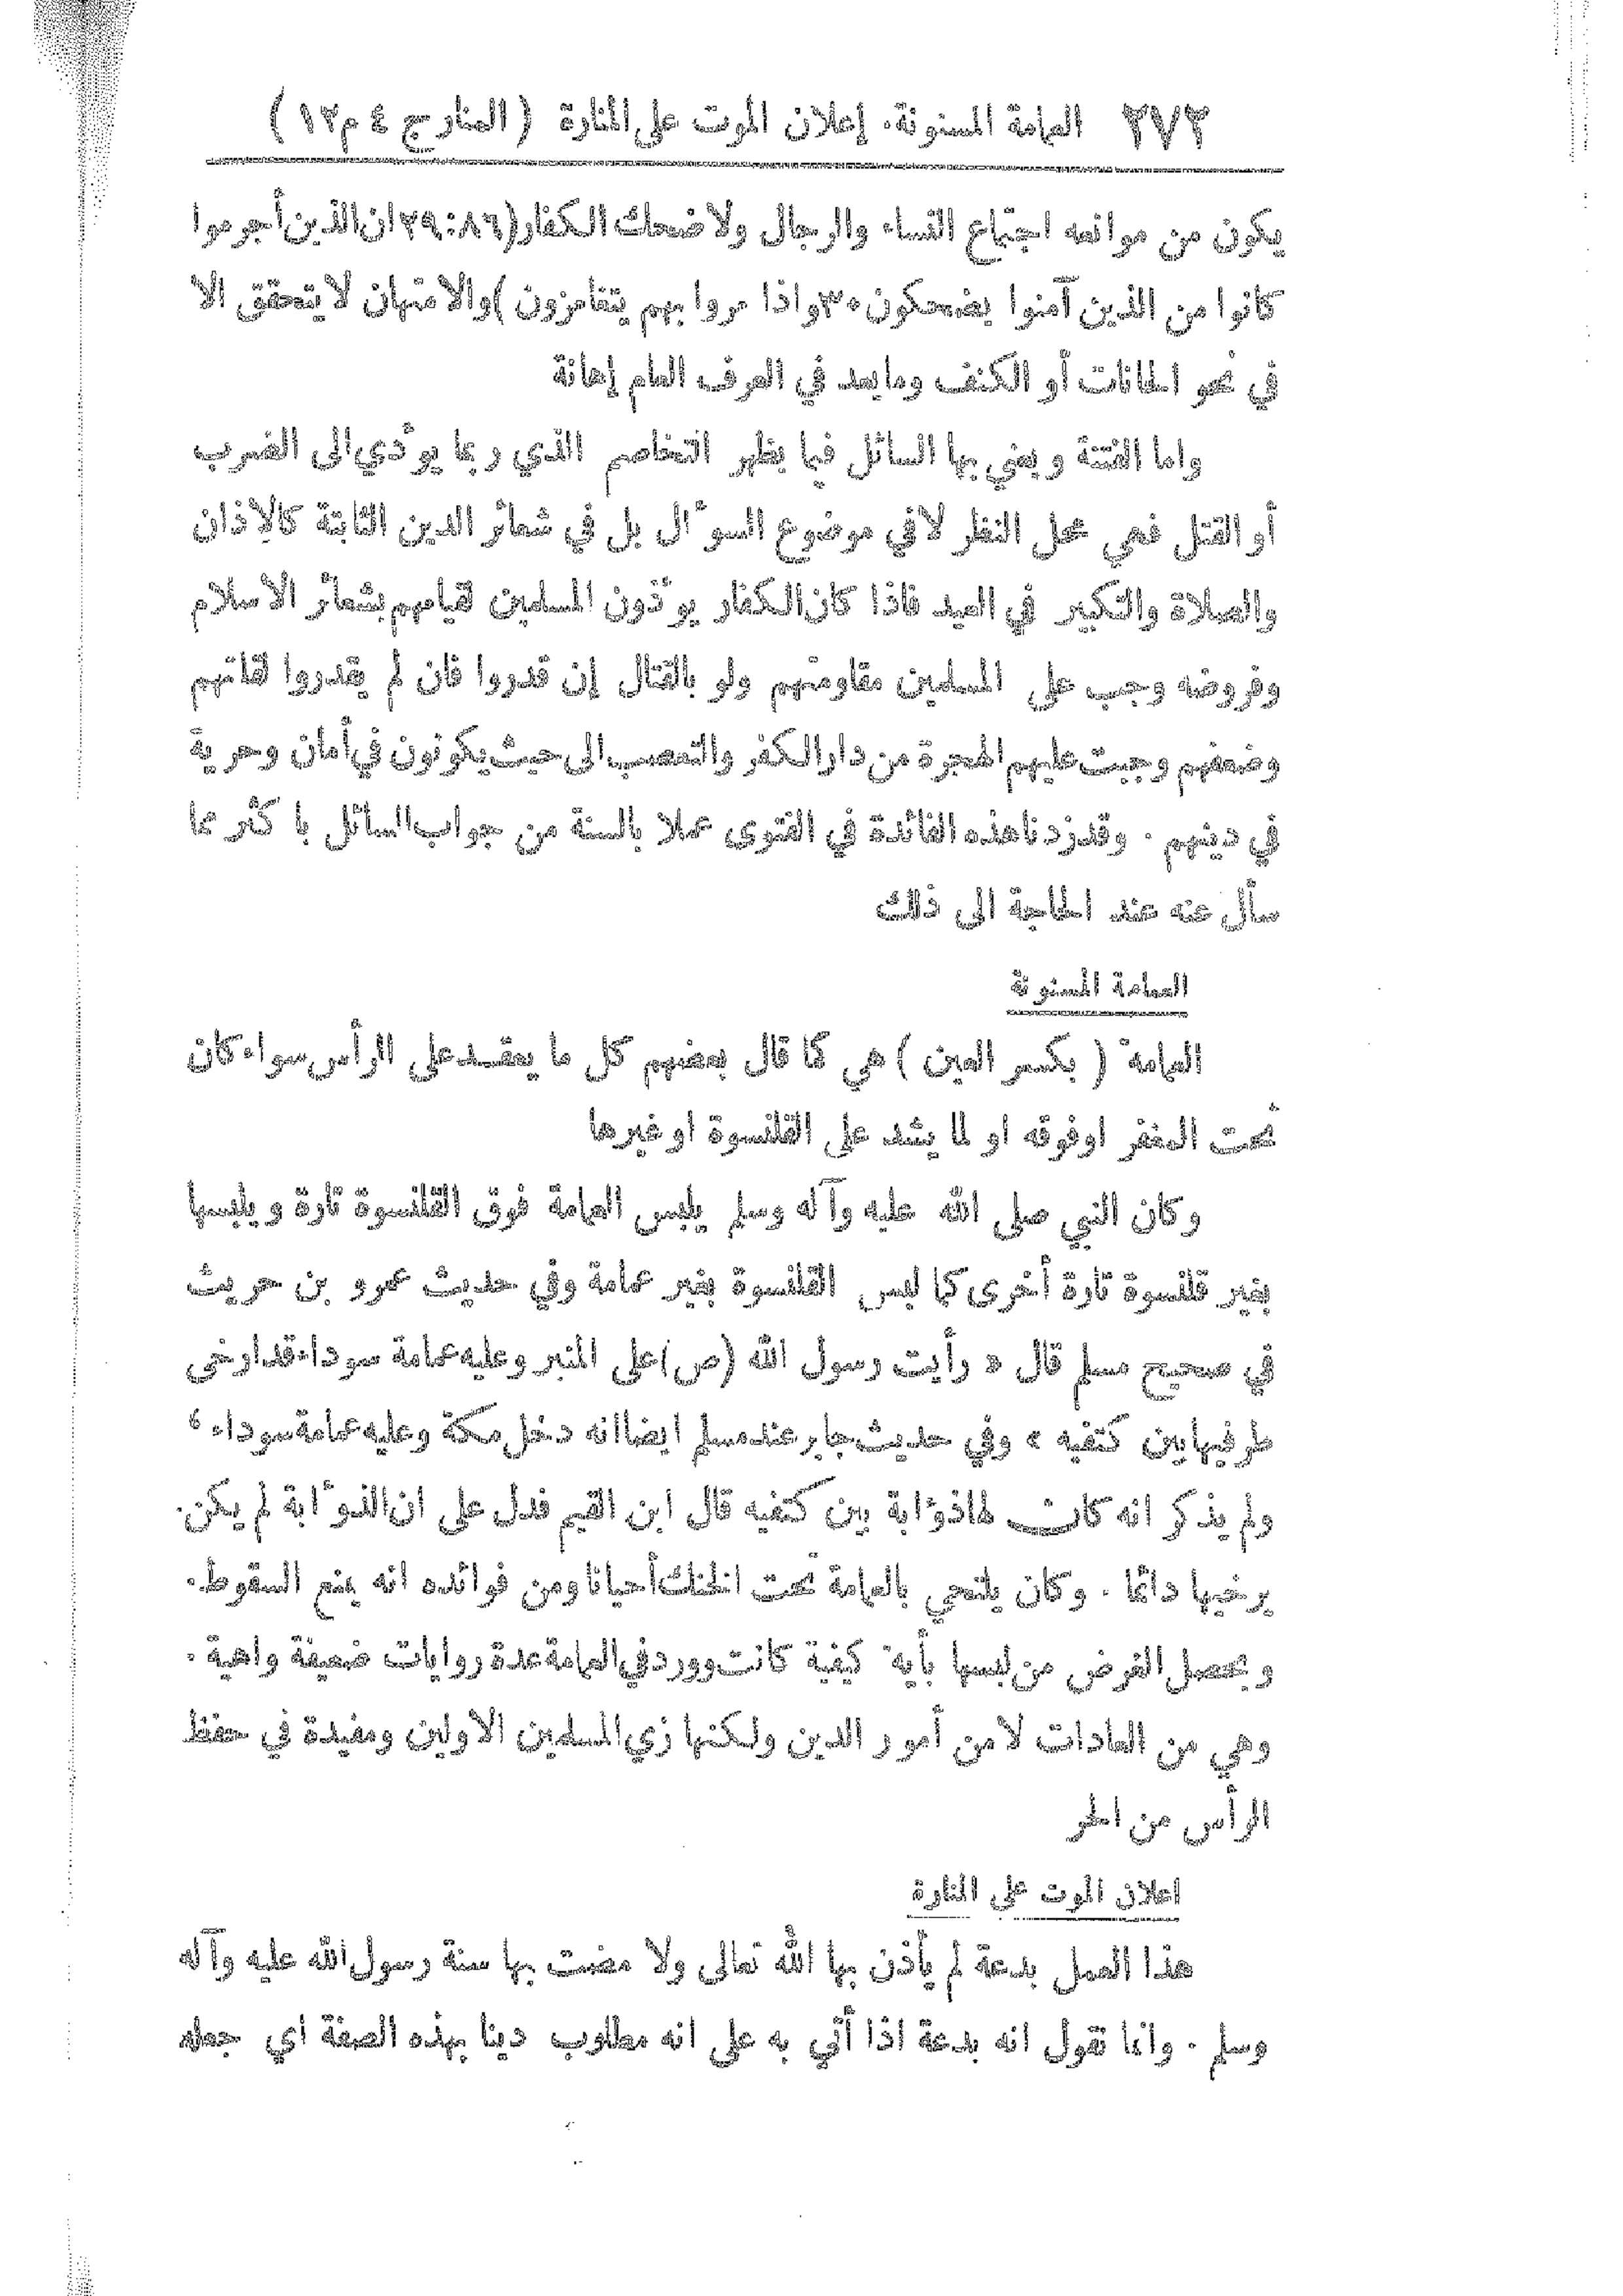 ٢٧٢ العمامة المسنونة. إعلان الموت على المنارة ( المنار ج ٤ م ١٢ )
يكون من موانعه اجتماع النساء والرجال ولا ضحك الكفار (٢٩:٨٦ ان الذين أجرموا
كانوا من الذين آمنوا يضحكون ٣٠ واذا مروا بهم يتغامزون ) والامتهان لا يتحقق الا
في نحو الحانات أو الكنف وما يعد في العرف العام إهانة
واما الفتنة ويعني بها السائل فيما يظهر التخاصم الذي ربما يؤدي الى الضرب
أو القتل فهي محل النظر لا في موضوع السؤال بل في شعائر الدين الثابتة كالاذان
والصلاة والتكبير في العيد فاذا كان الكفار يؤذون المسلمين لقيامهم بشعائر الاسلام
وفروضه وجب على المسلمين مقاومتهم ولو بالقتال إن قدروا فان لم يقدروا لقلتهم
وضعفهم وجبت عليهم الهجرة من دار الكفر والتعصب الى حيث يكونون في أمان وحرية
في دينهم . وقد زدنا هذه الفائدة في الفتوى عملا بالسنة من جواب السائل باكثر مما
سأل عنه عند الحاجة الى ذلك
العمامة المسنونة
العمامة ( بكسر العين ) هي كما قال بعضهم كل ما يعقد على الرأس سواء كان
تحت المغفر او فوقه او لما يشد على القلنسوة او غيرها
وكان النبي صلى الله عليه وآله وسلم يلبس العمامة فوق القلنسوة تارة ويلبسها
بغير قلنسوة تارة أخرى كما لبس القلنسوة بغير عمامة وفي حديث عمرو بن حريث
في صحيح مسلم قال « رأيت رسول الله (ص) على المنبر وعليه عمامة سوداء قد ارخى
طرفيها بين كتفيه » وفي حديث جابر عند مسلم ايضا انه دخل مكة وعليه عمامة سوداء ،
ولم يذكر انه كان لها ذؤابة بين كتفيه قال ابن القيم فدل على ان الذؤابة لم يكن
يرخيها دائما . وكان يلتحي بالعمامة تحت الحنك أحيانا ومن فوائده انه يمنع السقوط .
ويحصل الغرض من لبسها بأية كيفية كانت وورد في العمامة عدة روايات ضعيفة واهية .
وهي من العادات لا من أمور الدين ولكنها زي المسلمين الاولين ومفيدة في حفظ
الرأس من الحر
اعلان الموت على المنارة
هذا العمل بدعة لم يأذن بها الله تعالى ولا مضت بها سنة رسول الله عليه وآله
وسلم . وانما نقول انه بدعة اذا أتي به على انه مطلوب دينا بهذه الصفة اي جعله